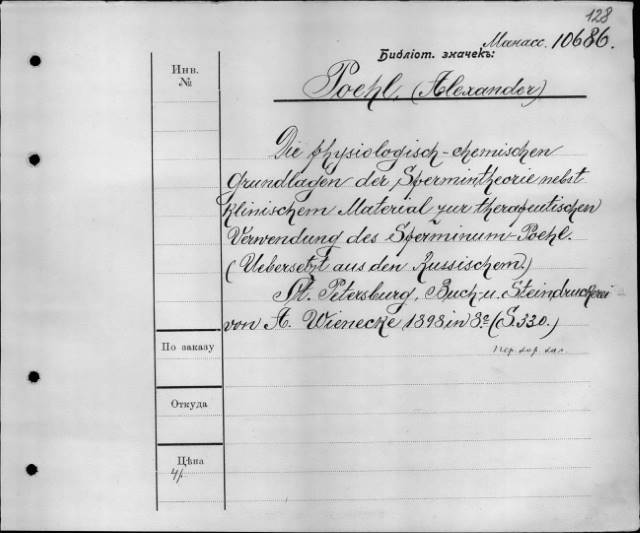 128
Манасс. 10686.
Библіот. значекъ:
Инв.
№
Poehl, (Alexander)
Die physiologisch-chemischen
Grundlagen der Spermintheorie nebst
klinischem Material zur therapeutischen
Verwendung des Sperminum-Poehl.
(Uebersetzt aus den Russischem.)
St. Petersburg, Buch- u. Steindruckerei
von A. Wienecke 1898 in 8º (S. 330.)
По заказу
Откуда
Цѣна